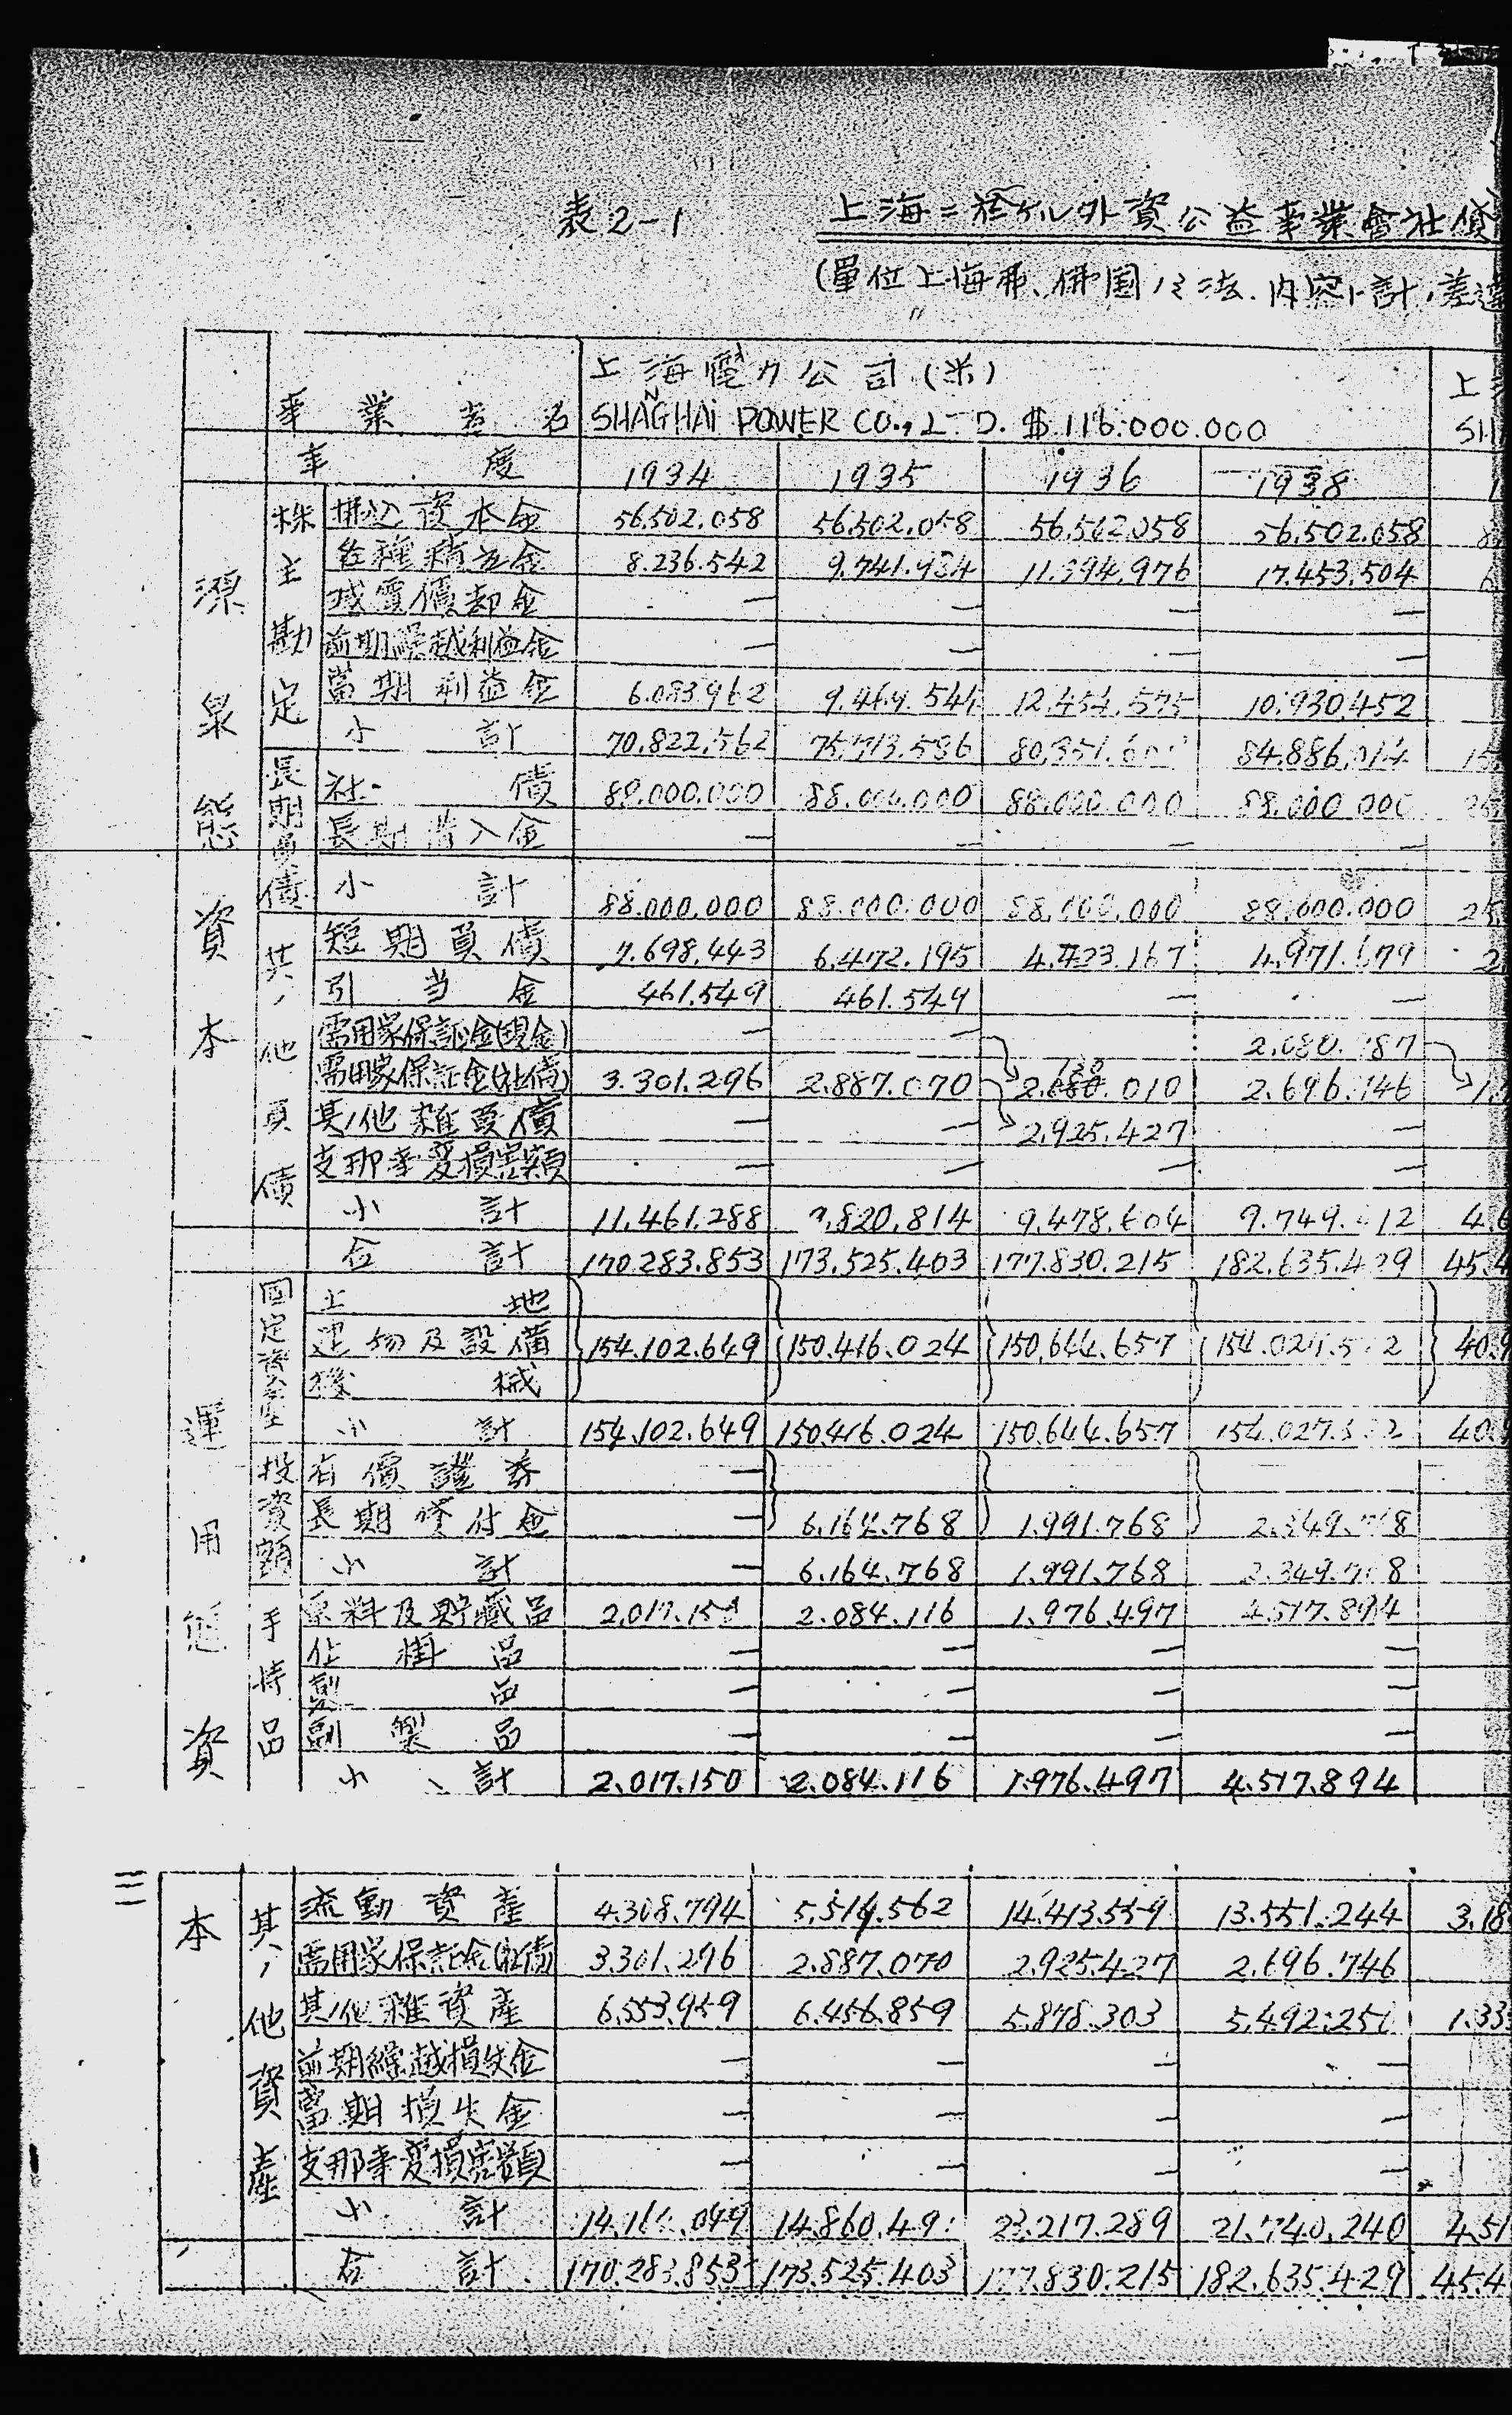 表2-1
上海ニ於ケル外資公益事業會社貸
(單位上海弗、佛国ハ法. 内容ト計ノ差違
事業者名 上海電力公司(米) 上海
SHANGHAI POWER CO., L=D. $ 116.000.000 SH
年度 1934 1935 1936 1938
源泉態資本
株主勘定
拂込資本金 56.502.058 56.502.058 56.502.058 56.502.058
各種積立金 8.236.542 9.741.934 11.394.976 17.453.504
減價償却金 — — — —
前期繰越利益金 — — — —
當期利益金 6.083.962 9.469.544 12.454.575 10.930.452
小計 70.822.562 75.713.586 80.351.6 84.886.014
長期負債
社債 88.000.000 88.000.000 88.000.000 88.000.000
長期借入金 — — — —
小計 88.000.000 88.000.000 88.000.000 88.000.000
其ノ他負債
短期負債 7.698.443 6.472.195 4.423.167 4.971.679
引当金 461.549 461.549 — —
需用家保証金(現金) — — 2.080.787
需用家保証金(社債) 3.301.296 2.887.070 2.130.010 2.696.746
其ノ他雜負債 — — 2.925.427 —
支那事変損害額 — — — —
小計 11.461.288 9.820.814 9.478.604 9.749.412 4.6
合計 170.283.853 173.525.403 177.830.215 182.635.429 45.4
運用態資
固定資産
土地
建物及設備 154.102.649 150.416.024 150.644.657 154.027.5 2 40.9
機械
小計 154.102.649 150.416.024 150.644.657 154.027.5 2 40.9
投資額
有價證券 —
長期貸付金 — 6.164.768 1.991.768 2.349.7 8
小計 — 6.164.768 1.991.768 2.349.7 8
手持品
原料及貯藏品 2.017.150 2.084.116 1.976.497 4.517.894
仕掛品 — — — —
製品 — — — —
副製品 — — — —
小計 2.017.150 2.084.116 1.976.497 4.517.894
三
本
其ノ他資産
流動資産 4.308.794 5.516.562 14.413.559 13.551.244 3.18
需用家保証金(社債) 3.301.296 2.887.070 2.925.427 2.696.746
其ノ他雜資産 6.553.959 6.456.859 5.878.303 5.492.25 1.33
前期繰越損失金 — — — —
當期損失金 — — — —
支那事変損害額 — — — —
小計 14.164.049 14.860.49 23.217.289 21.740.240 4.51
合計 170.283.853 173.525.403 177.830.215 182.635.429 45.4